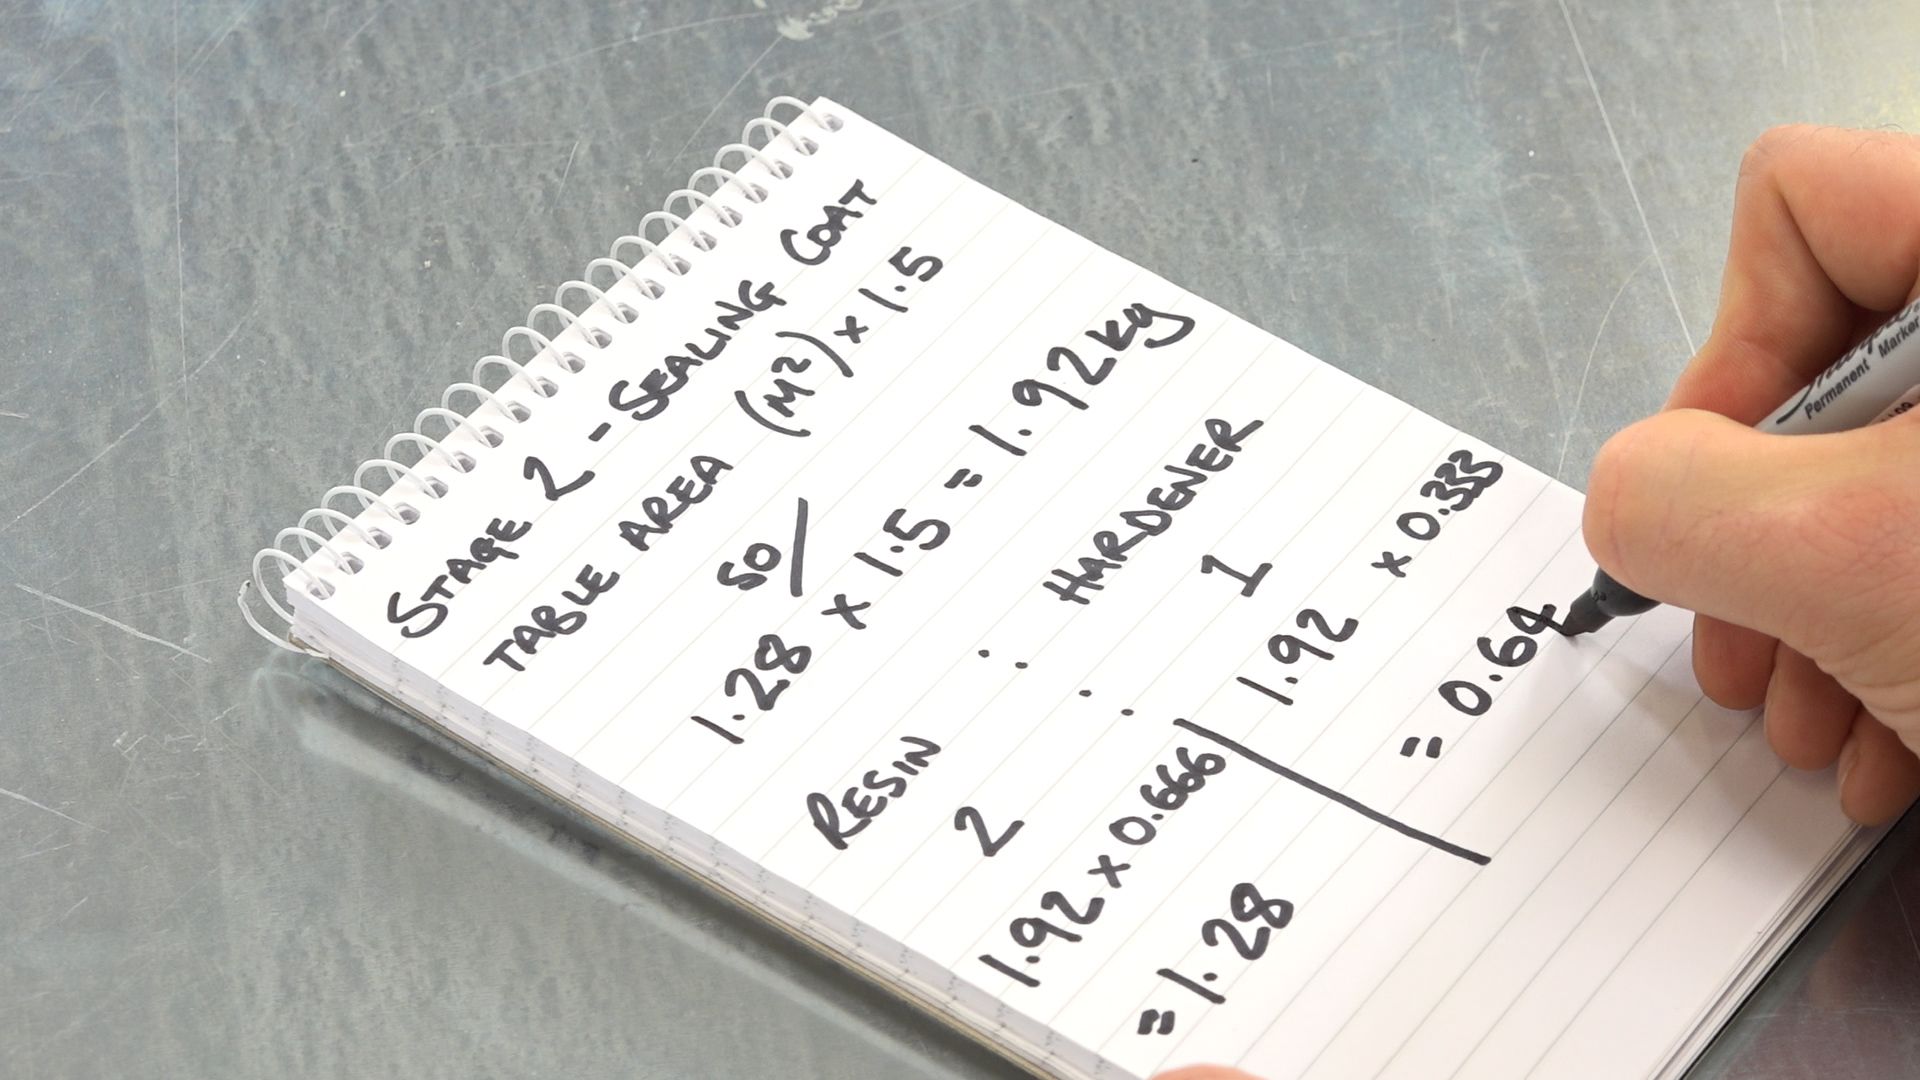 STAGE 2 - SEALING COAT
TABLE AREA (M²) × 1.5
SO/
1.28 × 1.5 = 1.92kg
RESIN : HARDENER
2 : 1
1.92 × 0.666 | 1.92 × 0.333
= 1.28 = 0.64
Permanent Marker